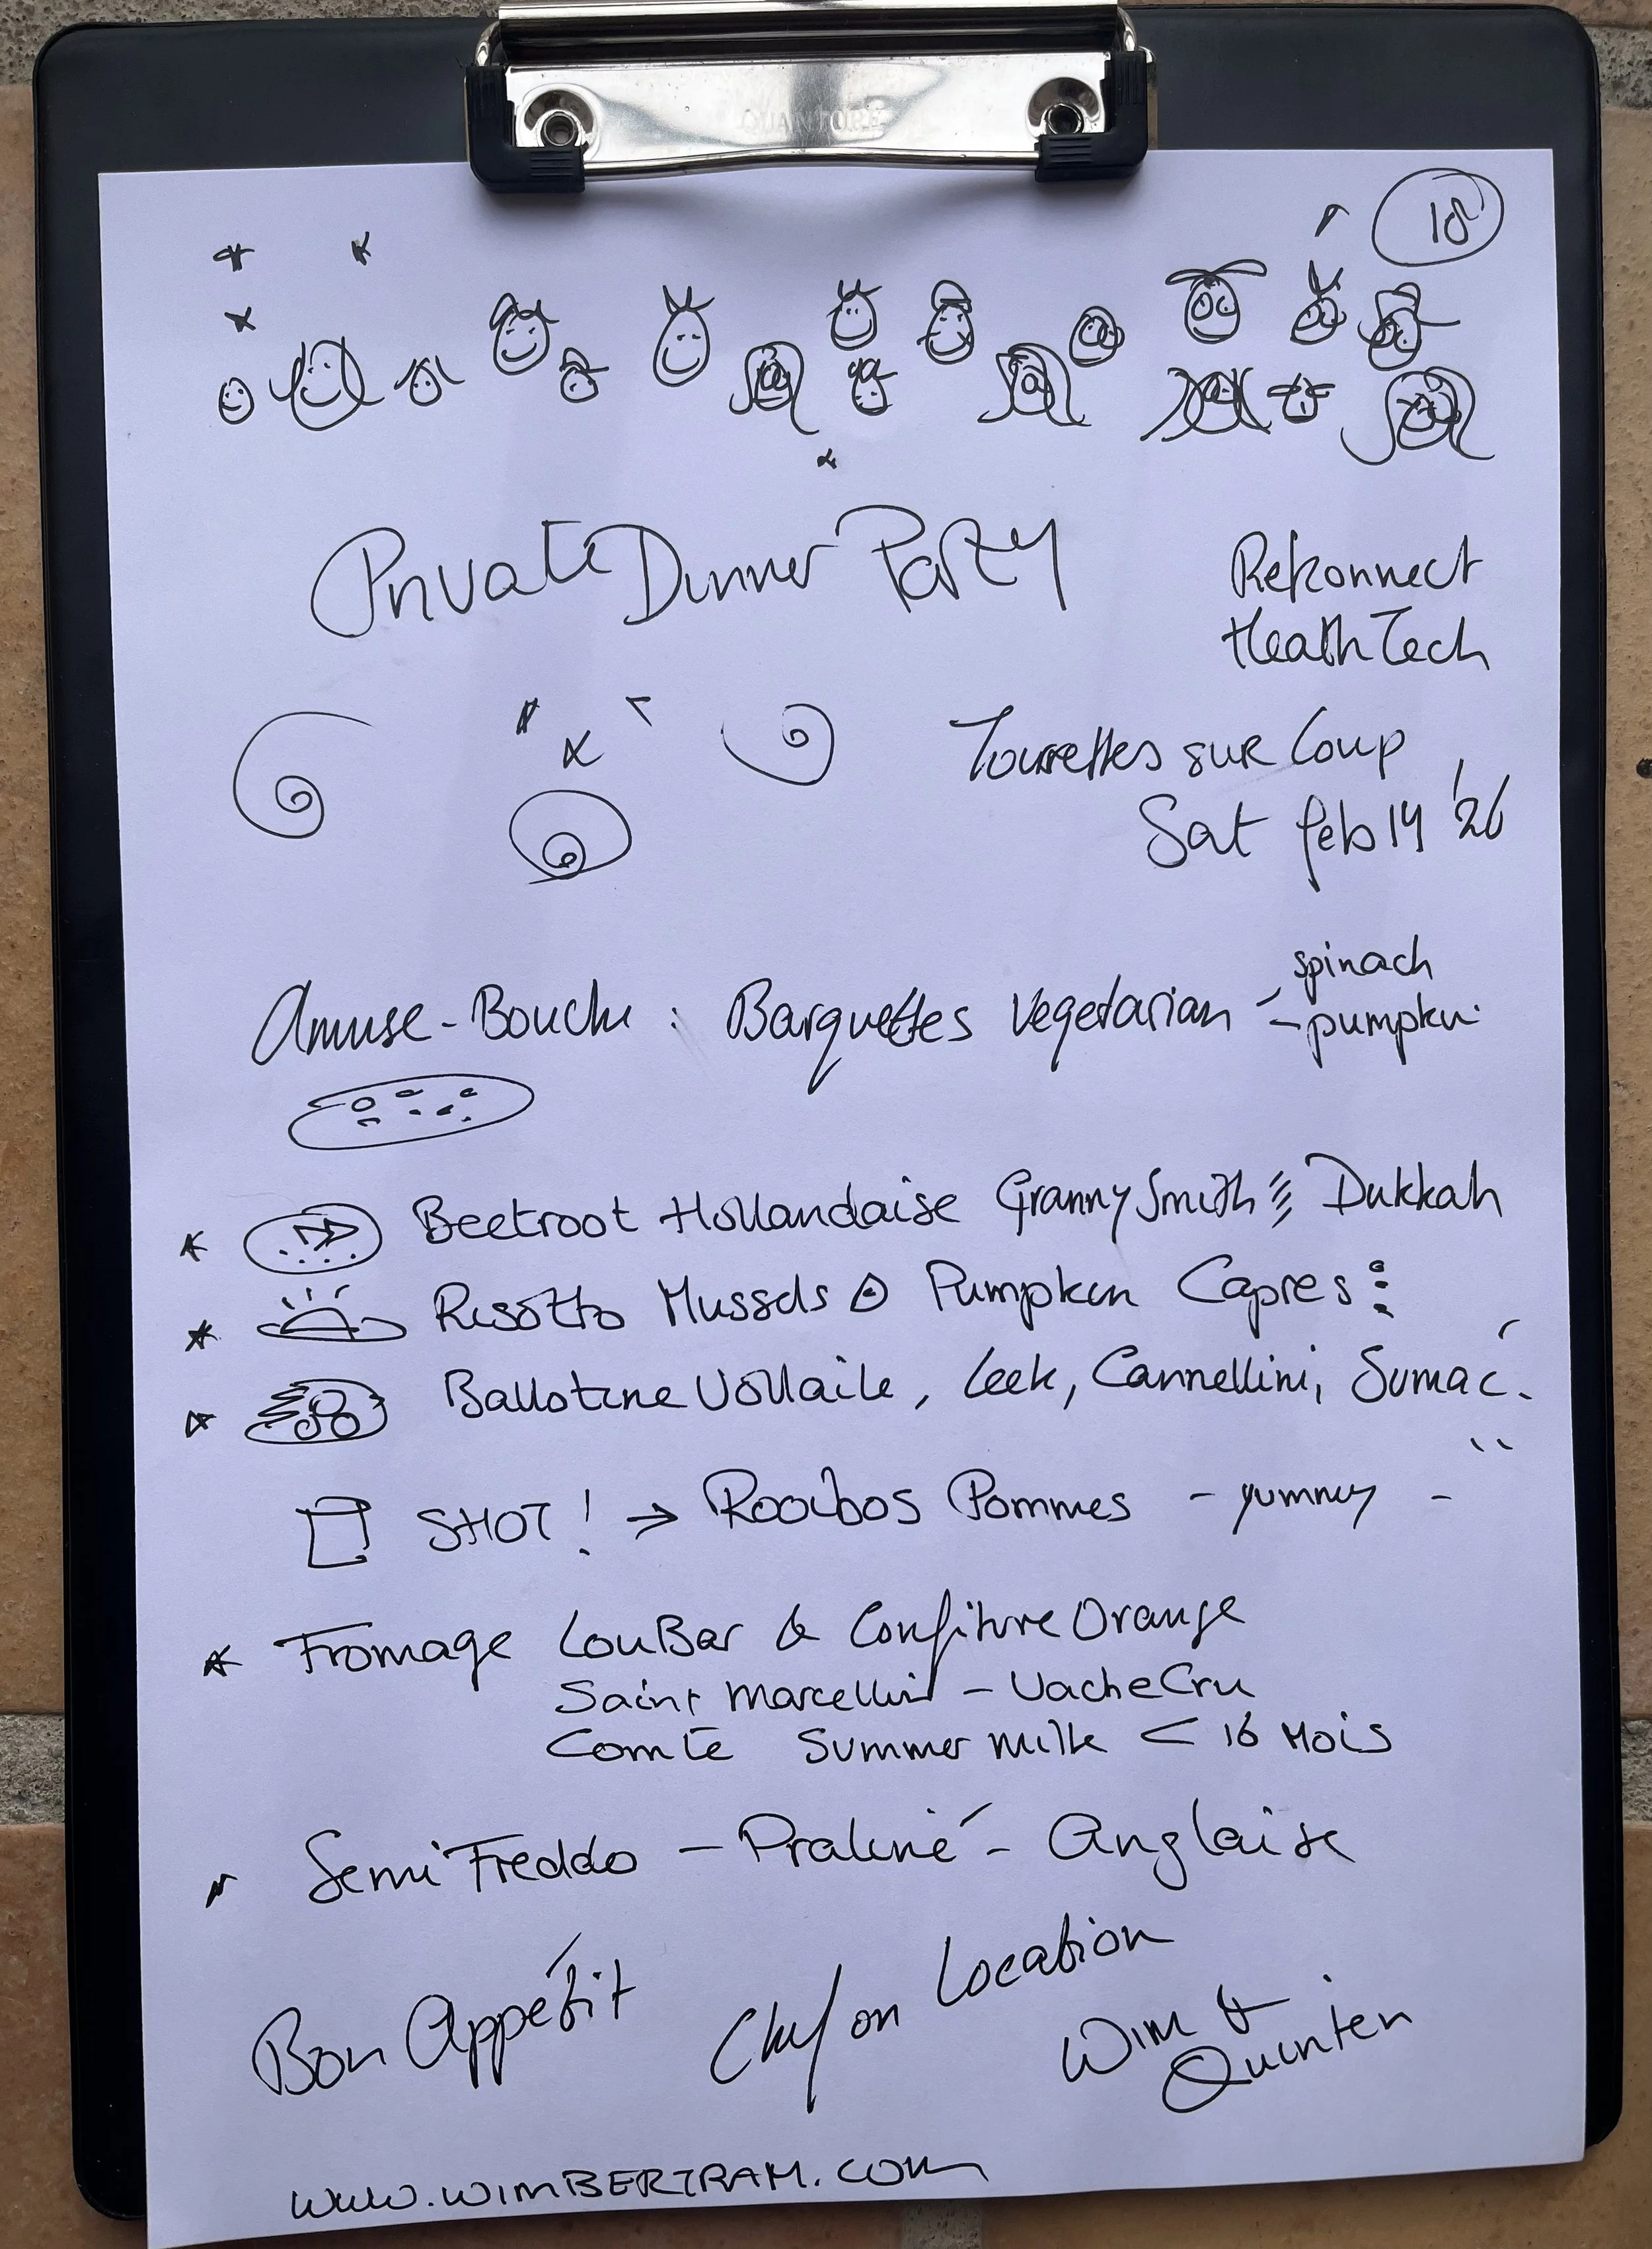 QUANTORE
18
Private Dinner Party
Rekonnect
HealthTech
Tourrettes sur Loup
Sat feb 14 '26
spinach
Amuse-Bouche : Barquettes Vegetarian - pumpkin
Beetroot Hollandaise Granny Smith Dukkah
Risotto Mussels Pumpkin Capres
Ballotine Vollaile, Leek, Cannellini, Sumac.
SHOT! → Rooibos Pommes - yummy -
Fromage LouBar & Confiture Orange
Saint Marcellin - Vache Cru
Comté Summer Milk < 16 Mois
Semi Freddo - Praliné - Anglaise
Bon Appétit Chef on Location
Wim &
Quinten
www.WIMBERTRAM.com